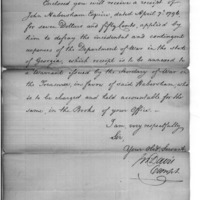 Enclosed you will receive a receipt of
John Habersham Esquire, dated April 7. 1796
for seven Dollars and fifty Cents, applied by
him to defray the incidental and contingent
expences of the Department of War in the state
of Georgia, which receipt is to be annexed to
a Warrant issued by the Secretary of War on
the Treasurer, in favor of said Habersham, who
is to be charged and held accountable for the
same in the Books of your Office.
I am very respectfully
Sir,
Your Obd. Servant